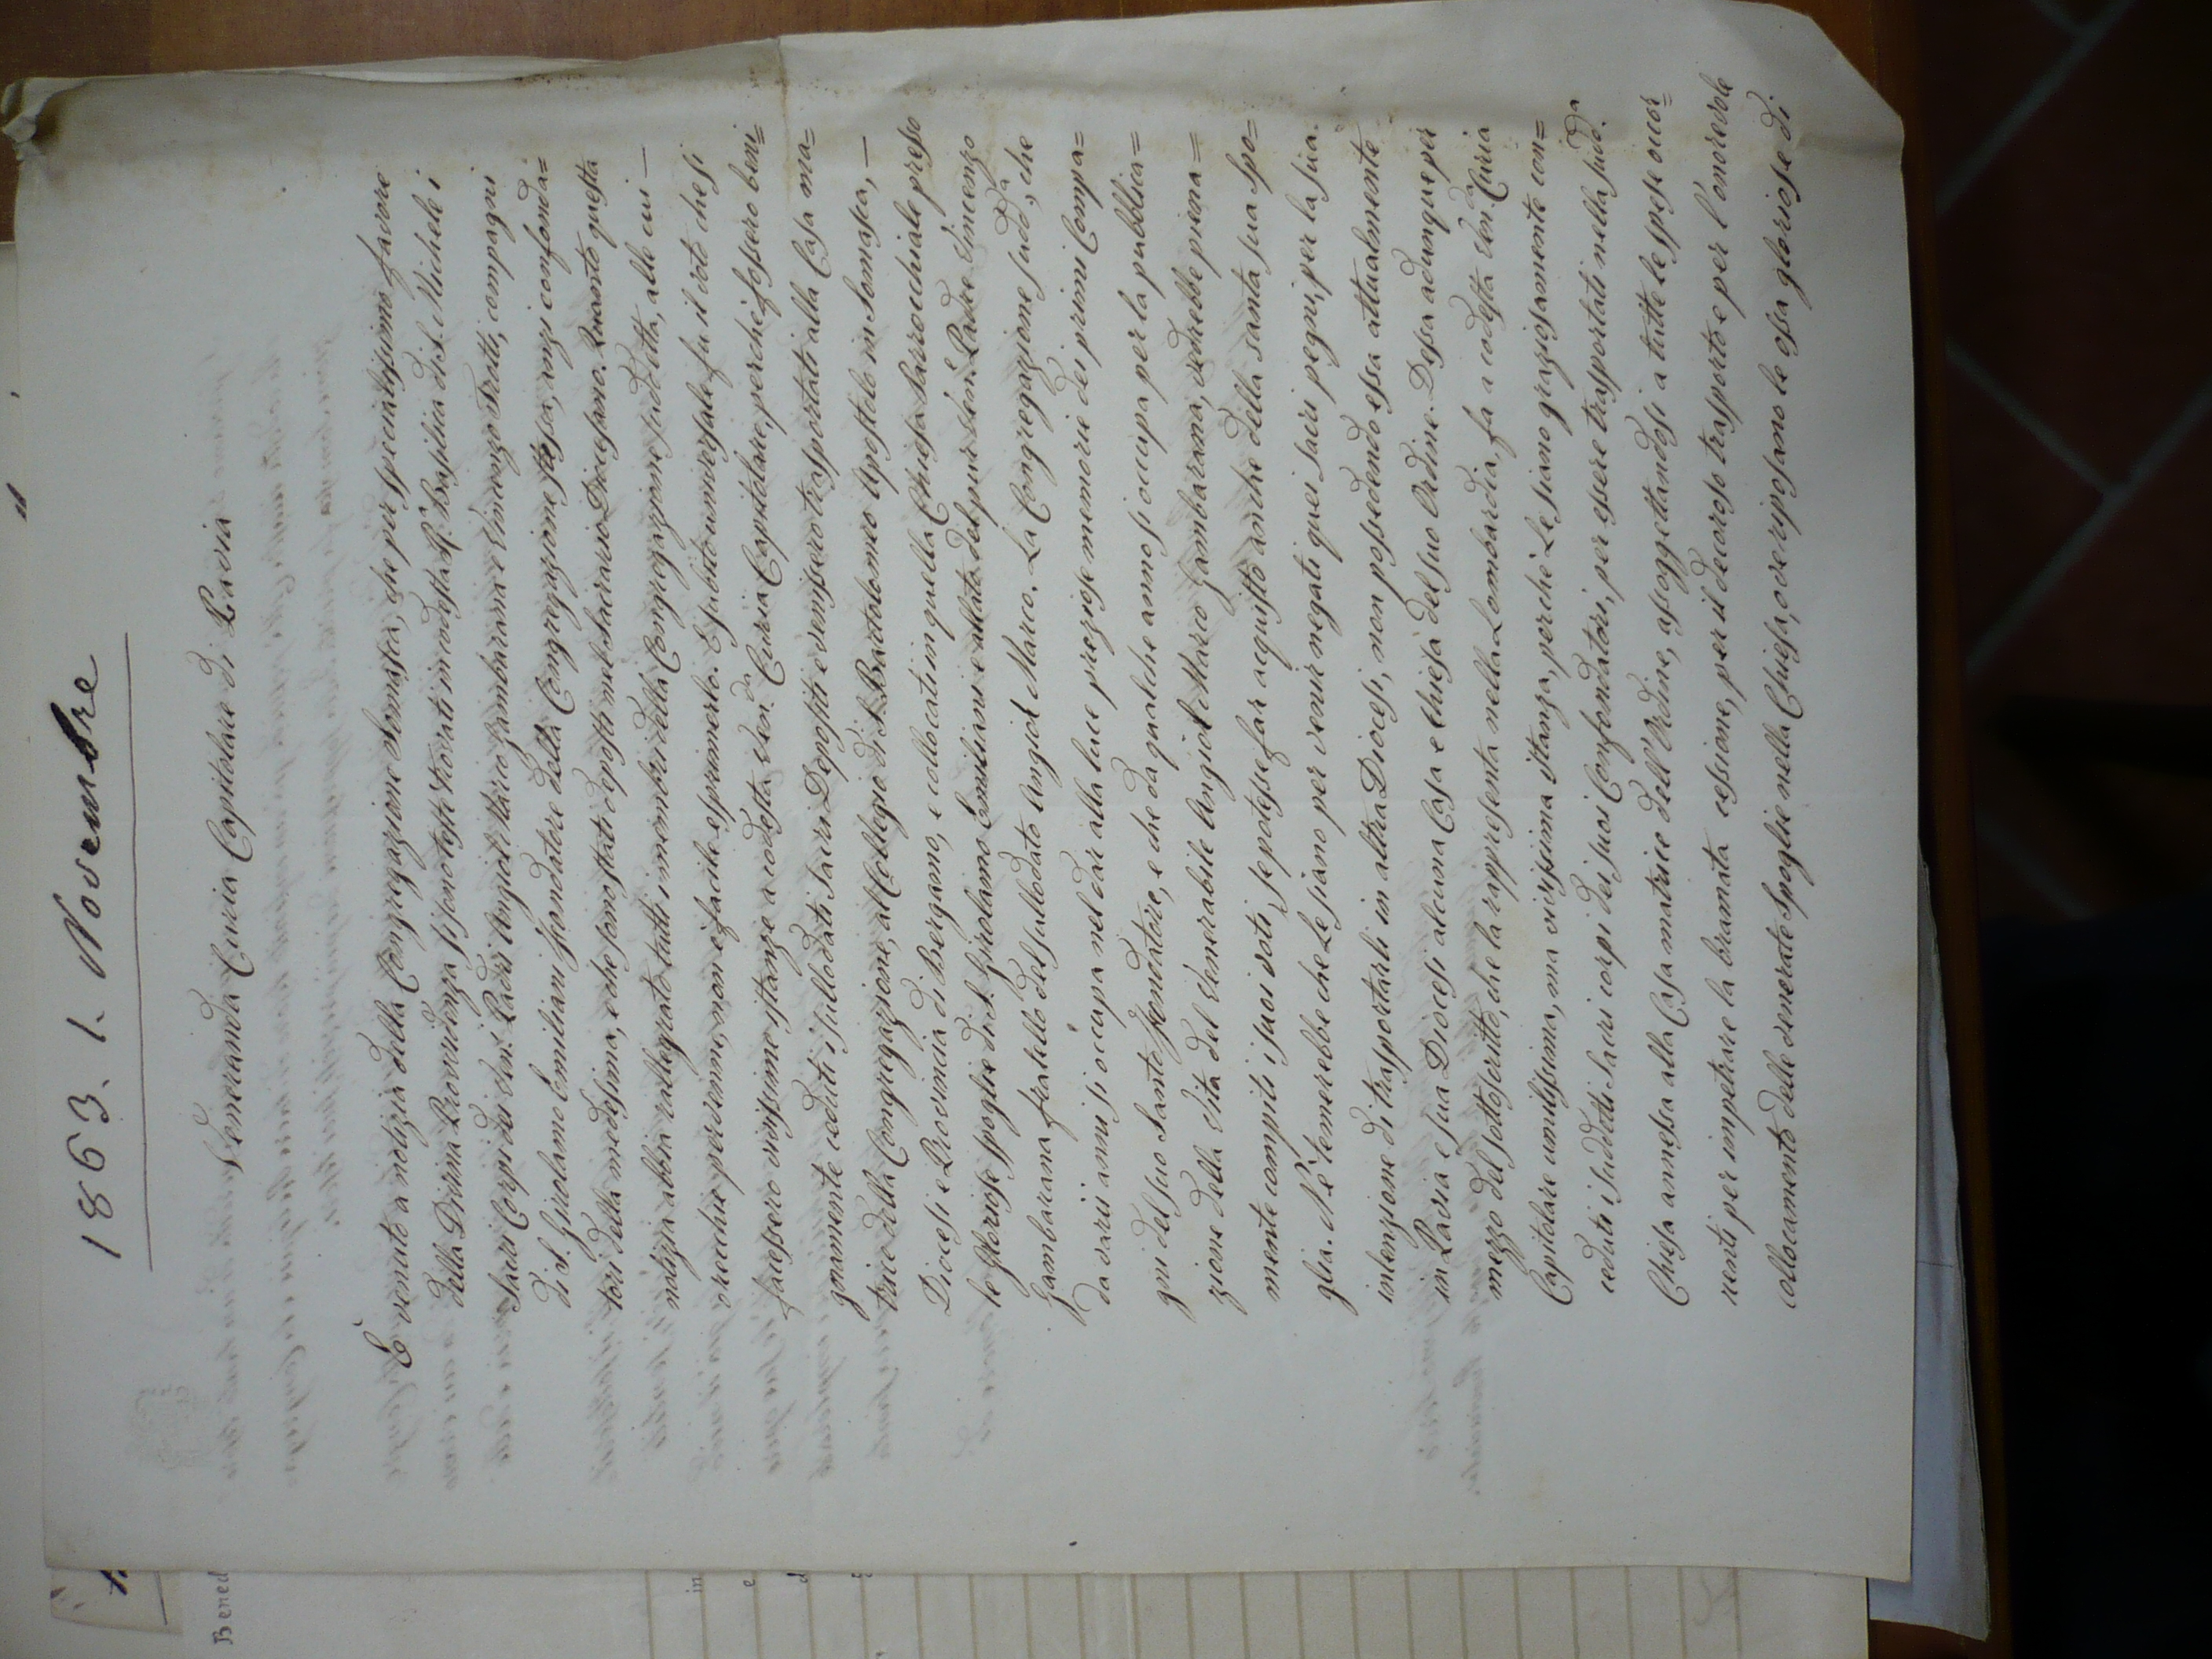 1863. 1. Novembre
Veneranda Curia Capitolare di Pavia
È venuto a notizia della Congregazione Somasca, che per specialissimo favore
della Divina Provvidenza si sono testè trovati in codesta R. Basilica di S. Michele i
Sacri Corpi dei Ven. Padri Angiol Marco Gambarana e Vincenzo Trotti, compagni
di S. Girolamo Emiliani fondatore della Congregazione stessa, anzi confonda=
tori della medesima, e che sono stati deposti nel Sacrario Diocesano. Quanto questa
notizia abbia rallegrato tutti i membri della Congregazione suddetta, alle cui —
orecchie pervenne, non è facile esprimerlo. E subito universale fu il voto che si
facessero vivissime istanze a codesta Ven.da Curia Capitolare, perchè fossero beni=
gnamente ceduti i sullodati Sacri Depositi e venissero trasportati alla Casa ma=
trice della Congregazione, al Collegio di S. Bartolomeo Apostolo in Somasca, —
Diocesi e Provincia di Bergamo, e collocati in quella Chiesa Parrocchiale presso
le gloriose spoglie di S. Girolamo Emiliani e allato del pur Ven.e Padre Vincenzo
Gambarana fratello del sullodato Angiol Marco. La Congregazione sudd.a, che
da varii anni si occupa nel dar alla luce preziose memorie dei primi Compa=
gni del suo Santo Fondatore, e che da qualche anno si occupa per la pubblica=
zione della Vita del Venerabile Angiol Marco Gambarana, vedrebbe piena=
mente compiti i suoi voti, se potesse far acquisto anche della santa sua Spo=
glia. Nè temerebbe che Le siano per venir negati quei sacri pegni, per la sua
intenzione di trasportarli in altra Diocesi, non possedendo essa attualmente
in Pavia e sua Diocesi alcuna Casa e Chiesa del suo Ordine. Dessa adunque per
mezzo del sottoscritto, che la rappresenta nella Lombardia, fa a codesta Ven.da Curia
Capitolare umilissima, ma vivissima istanza, perchè Le siano graziosamente con=
ceduti i suddetti Sacri corpi dei suoi Confondatori, per essere trasportati nella sudd.a
Chiesa annessa alla Casa matrice dell'Ordine, assoggettandosi a tutte le spese occor=
renti per impetrare la bramata cessione, per il decoroso trasporto e per l'onorevole
collocamento delle venerate Spoglie nella Chiesa, ove riposano le ossa gloriose di
Bened
in
e
d